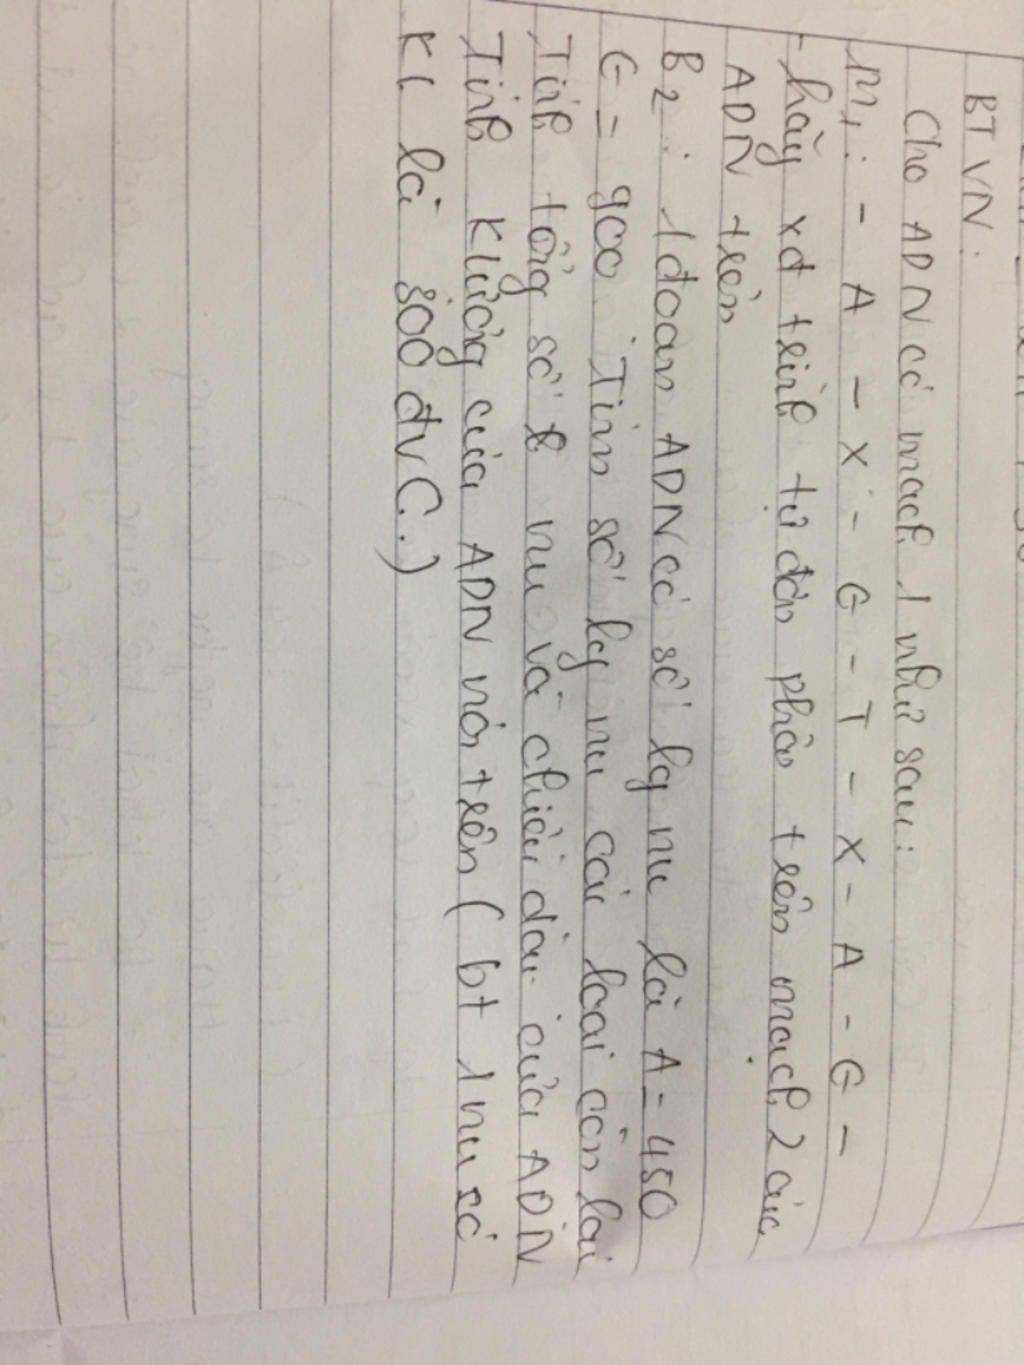 BTVN:
Cho ADN có mạch 1 như sau:
M1: - A - X - G - T - X - A - G -
- hãy xđ trình tự đơn phân trên mạch 2 của
ADN trên
B2: 1 đoạn ADN có số lg nu là A = 450
G = 900. Tìm số lg nu các loại còn lại
Tính tổng số nu và chiều dài của ADN
Tính Klượng của ADN nói trên (bt 1 nu có
KL là 300 đvC.)